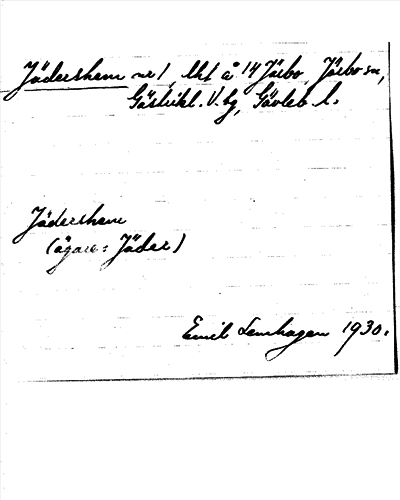 Jädershem nr 1, lht å 14 Järbo, Järbo sn,
Gästrikl. V. bg, Gävleb. l.
Jädershem
(ägare: Jäder)
Emil Lenhagen 1930.